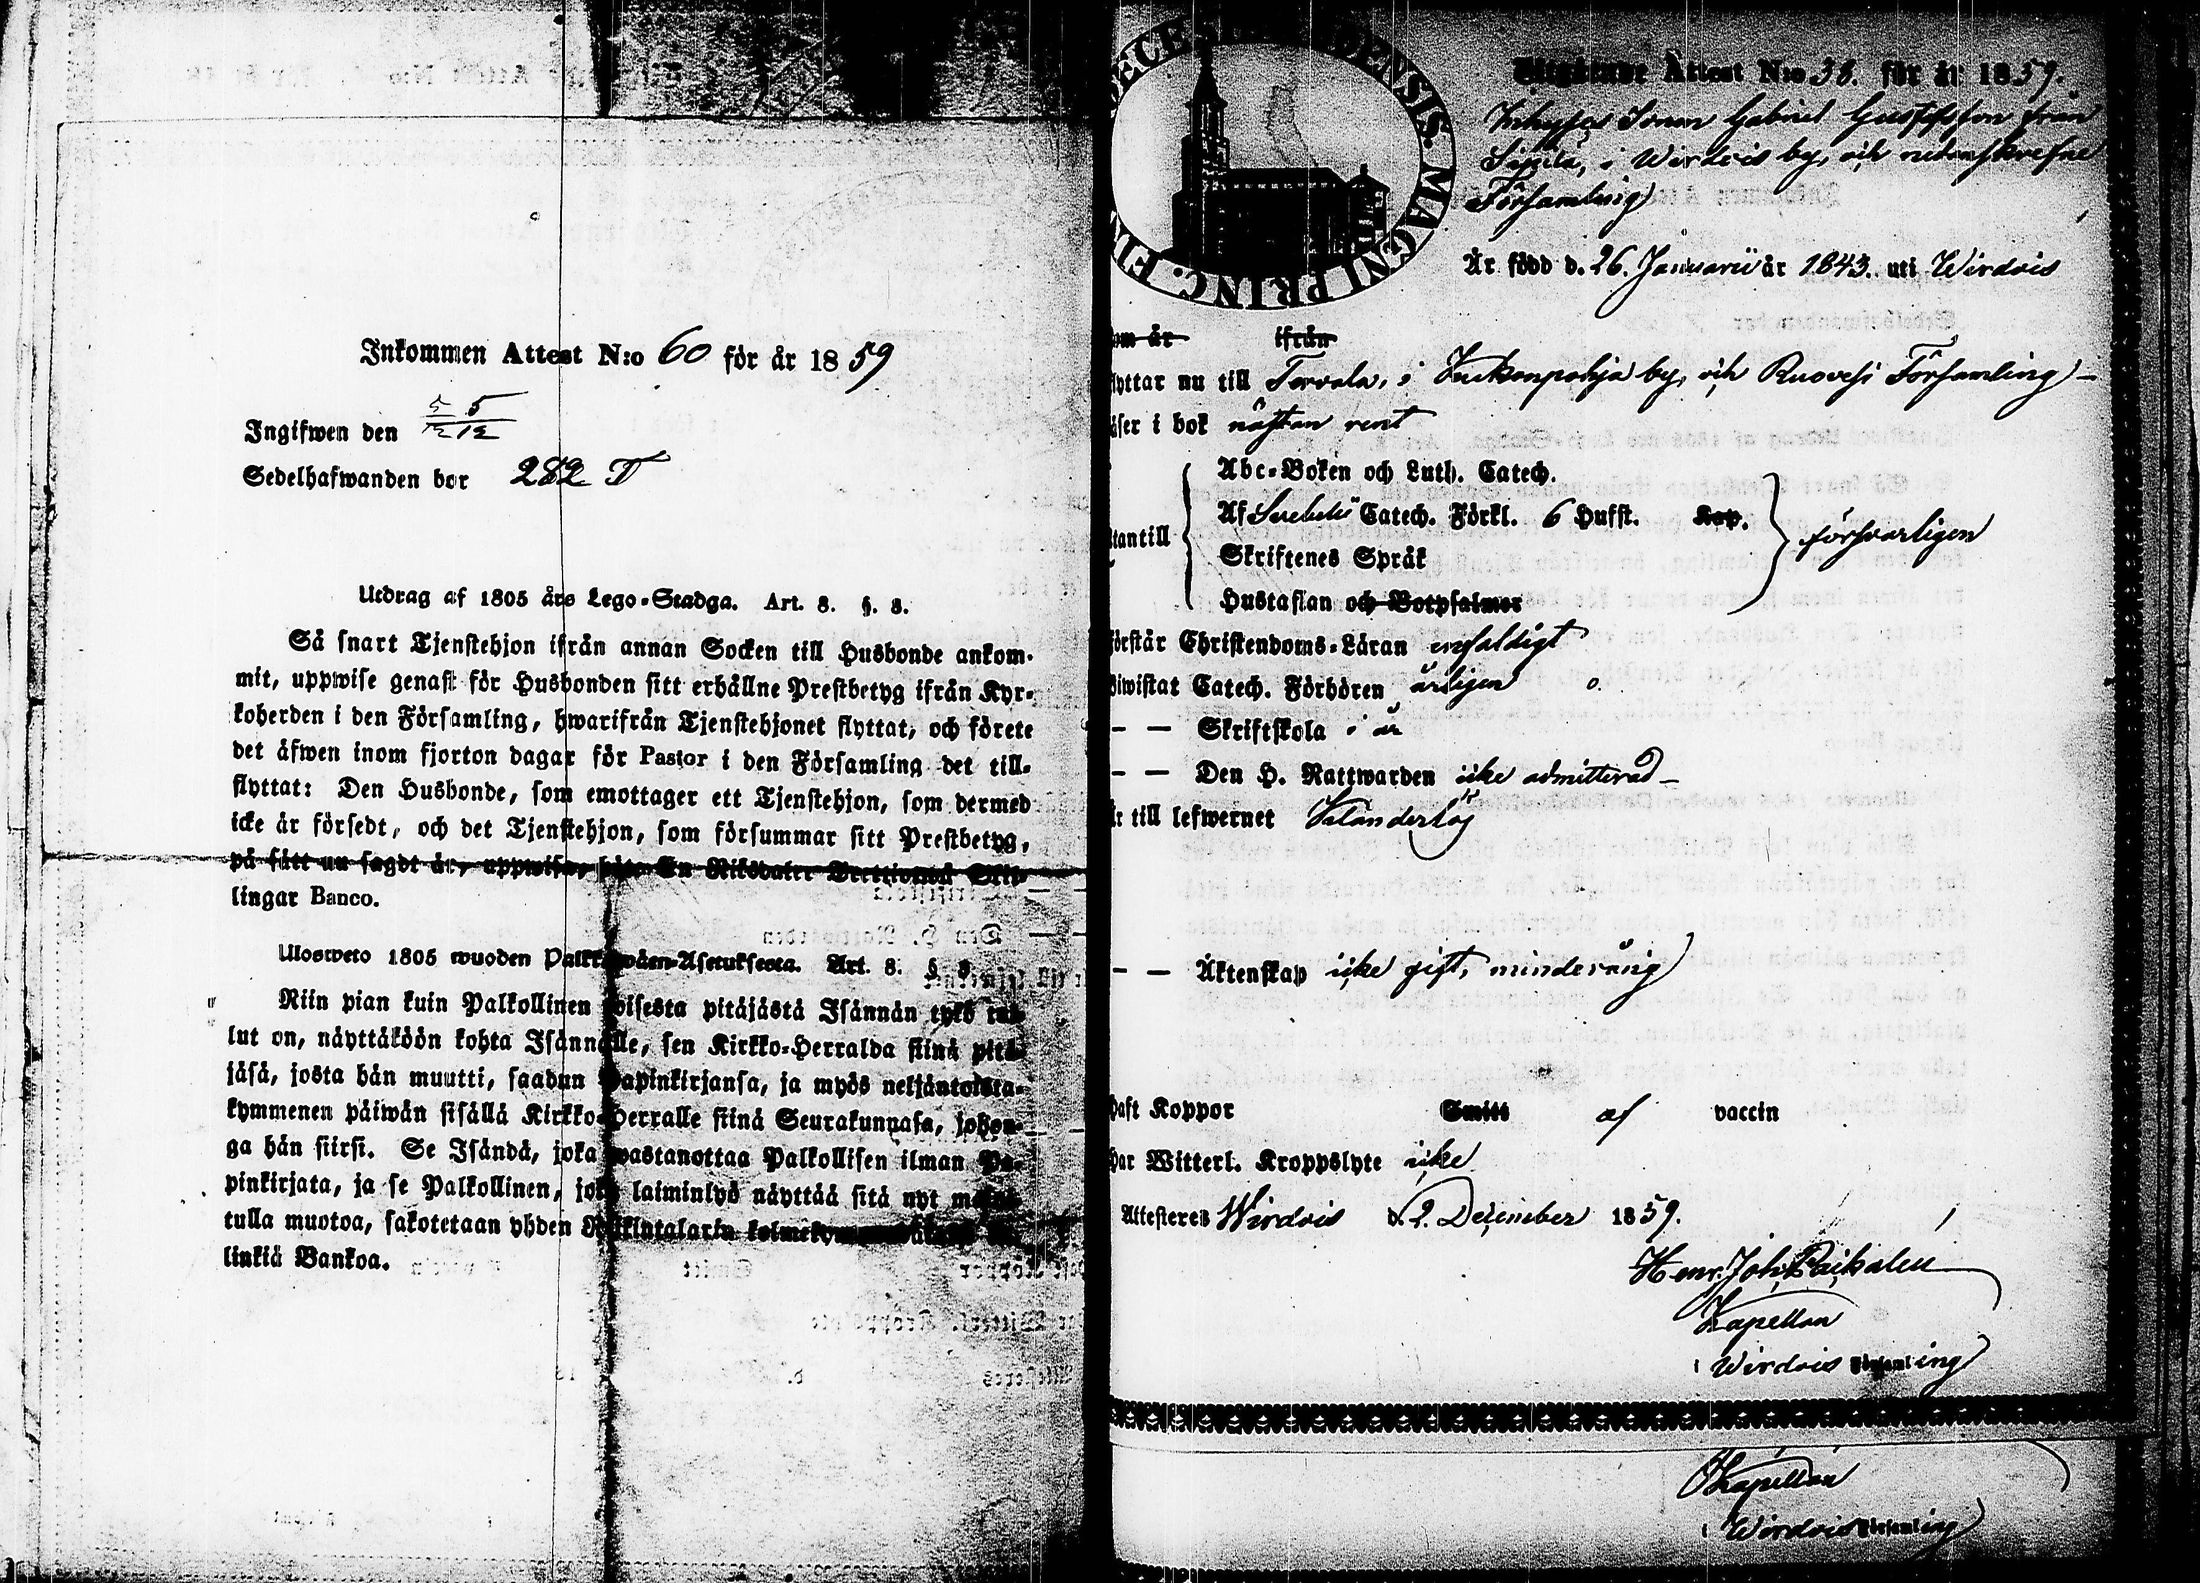 Inkommen Attest N:o 60 för år 1859
Ingifwen den 5/12 5/12
Sedelhafwanden bor 282 T
Utdrag af 1805 års Lego-Stadga. Art. 8. §. 8.
Så snart Tjenstehjon ifrån annan Socken till Husbonde ankom-
mit, uppwise genast för Husbonden sitt erhållne Prestbetyg ifrån Kyr-
koherden i den Församling, hwarifrån Tjenstehjonet flyttat, och förete
det äfwen inom fjorton dagar för Pastor i den Församling det till-
flyttat: Den Husbonde, som emottager ett Tjenstehjon, som dermed
icke är försedt, och det Tjenstehjon, som försummar sitt Prestbetyg,
på sätt nu sagdt är, uppwisa, böte En Riksdaler Trettiotwå Skil-
lingar Banco.
Ulosweto 1805 wuoden Palkkawäen-Asetuksesta. Art. 8. §
Niin pian kuin Palkollinen toisesta pitäjästä Isännän tykö tul-
lut on, näyttäköön kohta Isännälle, sen Kirkko-Herralda siinä pitä-
jäsä, josta hän muutti, saadun Papinkirjansa, ja myös neljäntoista-
kymmenen päiwän sisällä Kirkko-Herralle siinä Seurakunnasa, johon-
ga hän siirsi. Se Isändä, joka wastanottaa Palkollisen ilman Pa-
pinkirjata, ja se Palkollinen, joka laiminlyö näyttää sitä nyt
tulla muotoa, sakotetaan yhden Riksintalarin
linkiä Bankoa.
DECES ENSIS. MAGNI PRINC. FIN
Utgående Attest N:o 38. för år 1859.
Inhyses Sonen Gabriel Gustafsson från
Sipilä, i Wirdois by, och nedanskrefne
Församling
Är född d. 26. Januarii år 1843. uti Wirdois
om år ifrån
lyttar nu till Torvala, i by, och Ruovesi Församling –
äser i bok nästan rent
Abc-Boken och Luth. Catech.
Af Svebelii Catech. Förkl. 6 Hufst. Kap.
tantill försvarligen
Skriftenes Språk
Hustaflan och Botpsalmer
örstår Christendoms-Läran enfaldigt
iwistat Catech. Förhören årligen
– – Skriftskola i år
– – Den H. Nattwarden icke admitterad –
r till lefwernet
– – Äktenskap icke gift, minderårig
haft Koppor Smitt af vaccin
har Witterl. Kroppslyte icke
Attesteres Wirdois d. 2. December 1859.
Henr. Joh.
Kapellan
i Wirdois Församling
Kapellan
i Wirdois Församling